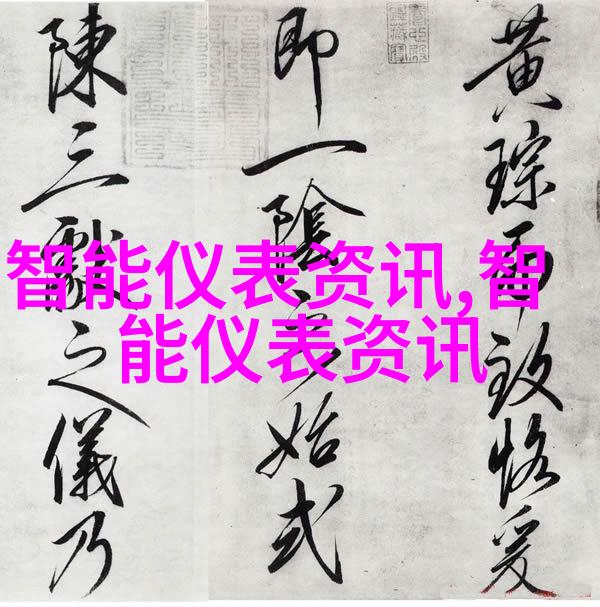 智能仪表资讯,智
能仪表资讯
黄琮而致恪爰
即一陰之始式
陳三獻之儀乃